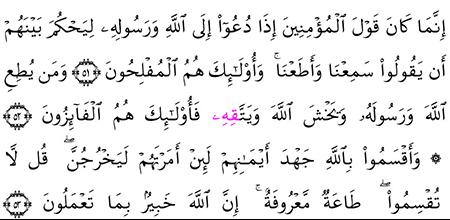 إِنَّمَا كَانَ قَوْلَ ٱلْمُؤْمِنِينَ إِذَا دُعُوٓا۟ إِلَى ٱللَّهِ وَرَسُولِهِۦ لِيَحْكُمَ بَيْنَهُمْ
أَن يَقُولُوا۟ سَمِعْنَا وَأَطَعْنَا ۚ وَأُو۟لَـٰٓئِكَ هُمُ ٱلْمُفْلِحُونَ ﴿٥١﴾ وَمَن يُطِعِ
ٱللَّهَ وَرَسُولَهُۥ وَيَخْشَ ٱللَّهَ وَيَتَّقِهِۦ فَأُو۟لَـٰٓئِكَ هُمُ ٱلْفَآئِزُونَ ﴿٥٢﴾
۞ وَأَقْسَمُوا۟ بِٱللَّهِ جَهْدَ أَيْمَـٰنِهِمْ لَئِنْ أَمَرْتَهُمْ لَيَخْرُجُنَّ ۖ قُل لَّا
تُقْسِمُوا۟ ۖ طَاعَةٌ مَّعْرُوفَةٌ ۚ إِنَّ ٱللَّهَ خَبِيرٌۢ بِمَا تَعْمَلُونَ ﴿٥٣﴾